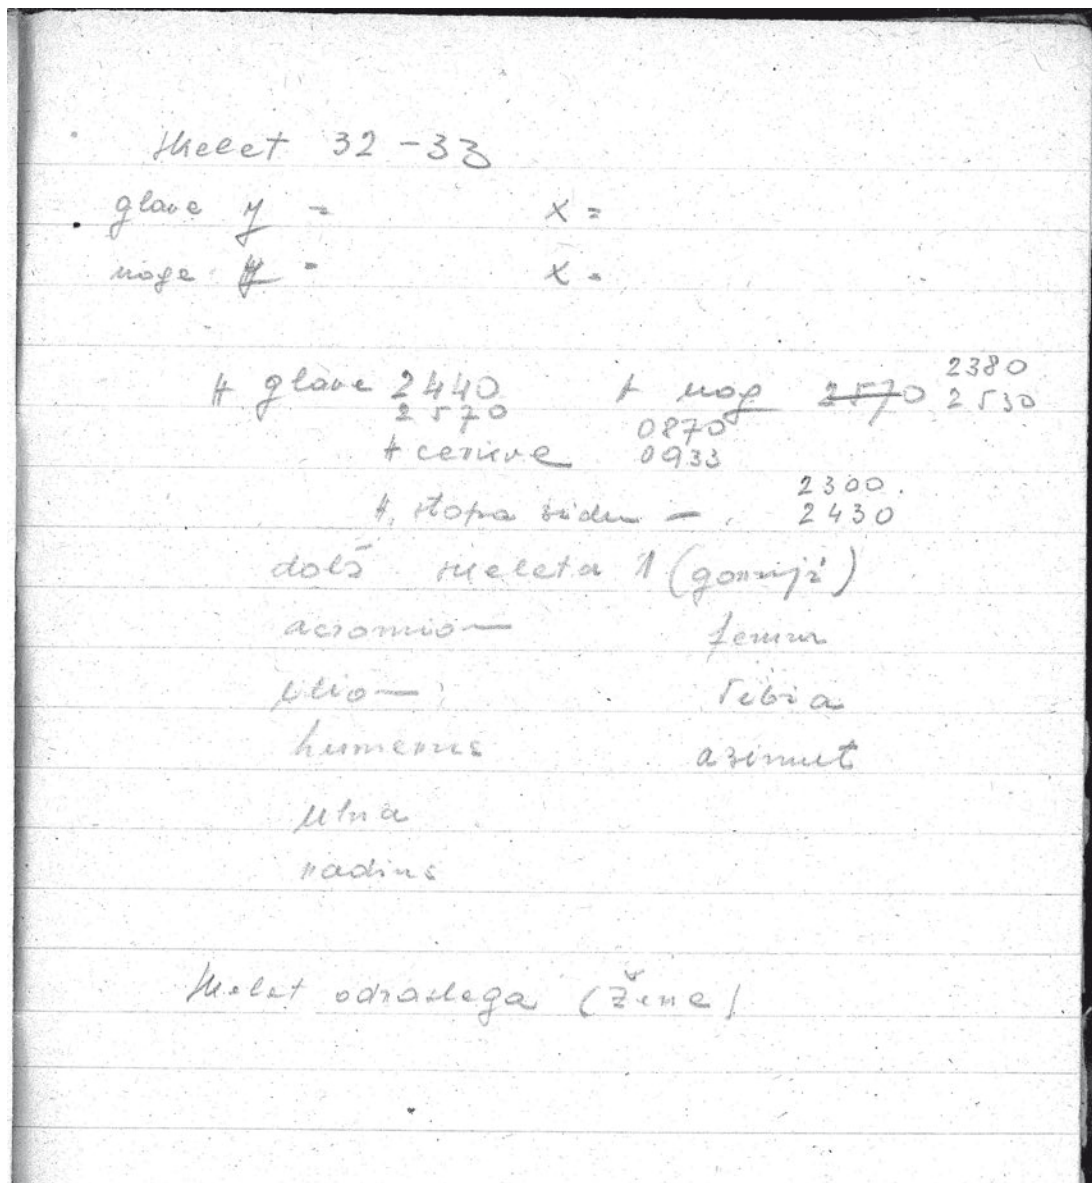 Skelet 32-33
glave y = x =
noge y = x =
H glave 2440 H nog 2570 2380
2570 0870 2530
H 0933
2300.
H. stopa zidu - . 2430
dolž skeleta 1 (gornji)
acromio—
femur
ilio— tibia
humerus azimut
ulna
radius
Skelet odraslega (žene)